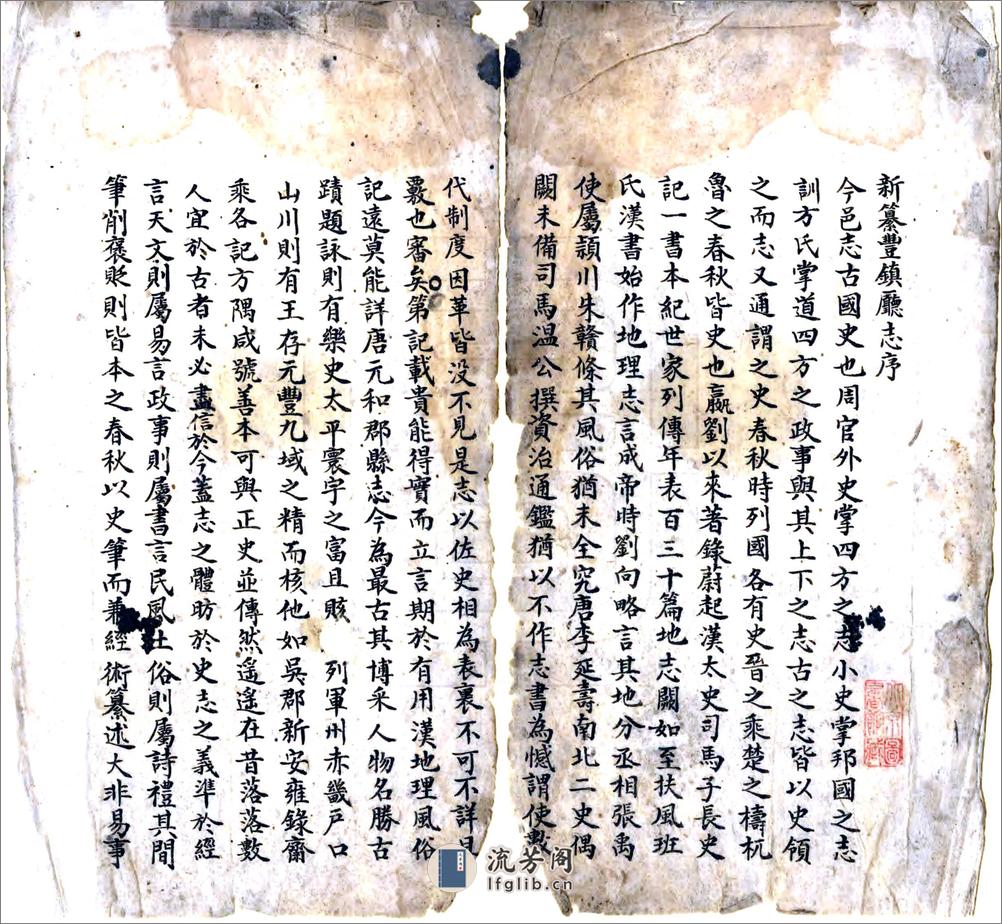 新纂豐鎮廳志序
今邑志古國史也周官外史掌四方之志小史掌邦國之志
訓方氏掌道四方之政事與其上下之志古之志皆以史領
之而志又通謂之史春秋時列國各有史晉之乘楚之檮杌
魯之春秋皆史也嬴劉以來著錄蔚起漢太史司馬子長史
記一書本紀世家列傳年表百三十篇地志闕如至扶風班
氏漢書始作地理志言成帝時劉向略言其地分丞相張禹
使屬潁川朱贛條其風俗猶未全究唐李延壽南北二史偶
闕未備司馬溫公撰資治通鑑猶以不作志書為憾謂使數
代制度因革皆没不見是志以佐史相為表裏不可不詳且
覈也審矣第記載貴能得實而立言期於有用漢地理風俗
記遠莫能詳唐元和郡縣志今為最古其博采人物名勝古
蹟題詠則有樂史太平寰宇之富且賅 列軍州赤畿戶口
山川則有王存元豐九域之精而核他如吳郡新安雍錄齊
乘各記方隅咸號善本可與正史並傳然遥遥在昔落落數
人宜於古者未必盡信於今蓋志之體昉於史志之義準於經
言天文則屬易言政事則屬書言民風土俗則屬詩禮其間
筆削褒貶則皆本之春秋以史筆而兼經術纂述大非易事
流芳阁
lfglib.cn